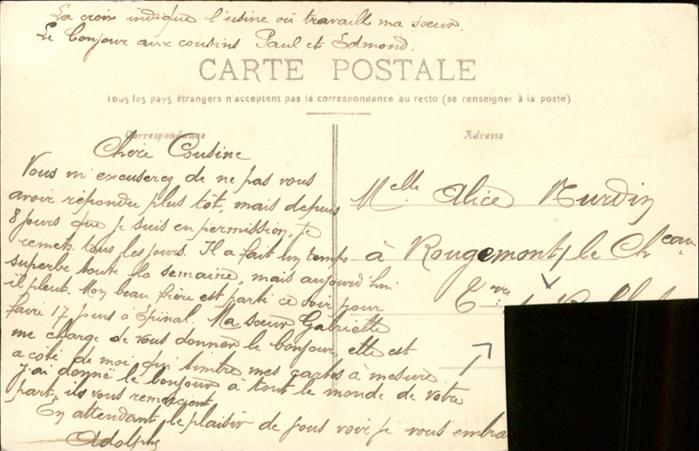 La croix indique l'usine où travaill ma soeur.
Le bonjour aux cousins Paul et Edmond.
CARTE POSTALE
Tous les pays étrangers n'acceptent pas la correspondance au recto (se renseigner à la poste)
Correspondance
Adresse
Chère Cousine
Vous m'excuserez de ne pas vous
avoir répondu plus tôt, mais depuis
8 jours que je suis en permission, je
remets tous les jours. Il a fait un temps
superbe toute la semaine, mais aujourd'hui
il pleut. Mon beau frère est parti ce soir pour
faire 17 jours à Epinal. Ma soeur Gabrielle
me charge de vous donner le bonjour, elle est
a coté de moi qui timbre mes cartes à mesure
j'ai donné le bonjour à tout le monde de votre
part, ils vous remercient
En attendant le plaisir de vous voir je vous embra
Adolphe
Melle Alice
à Rougemont le Cheau